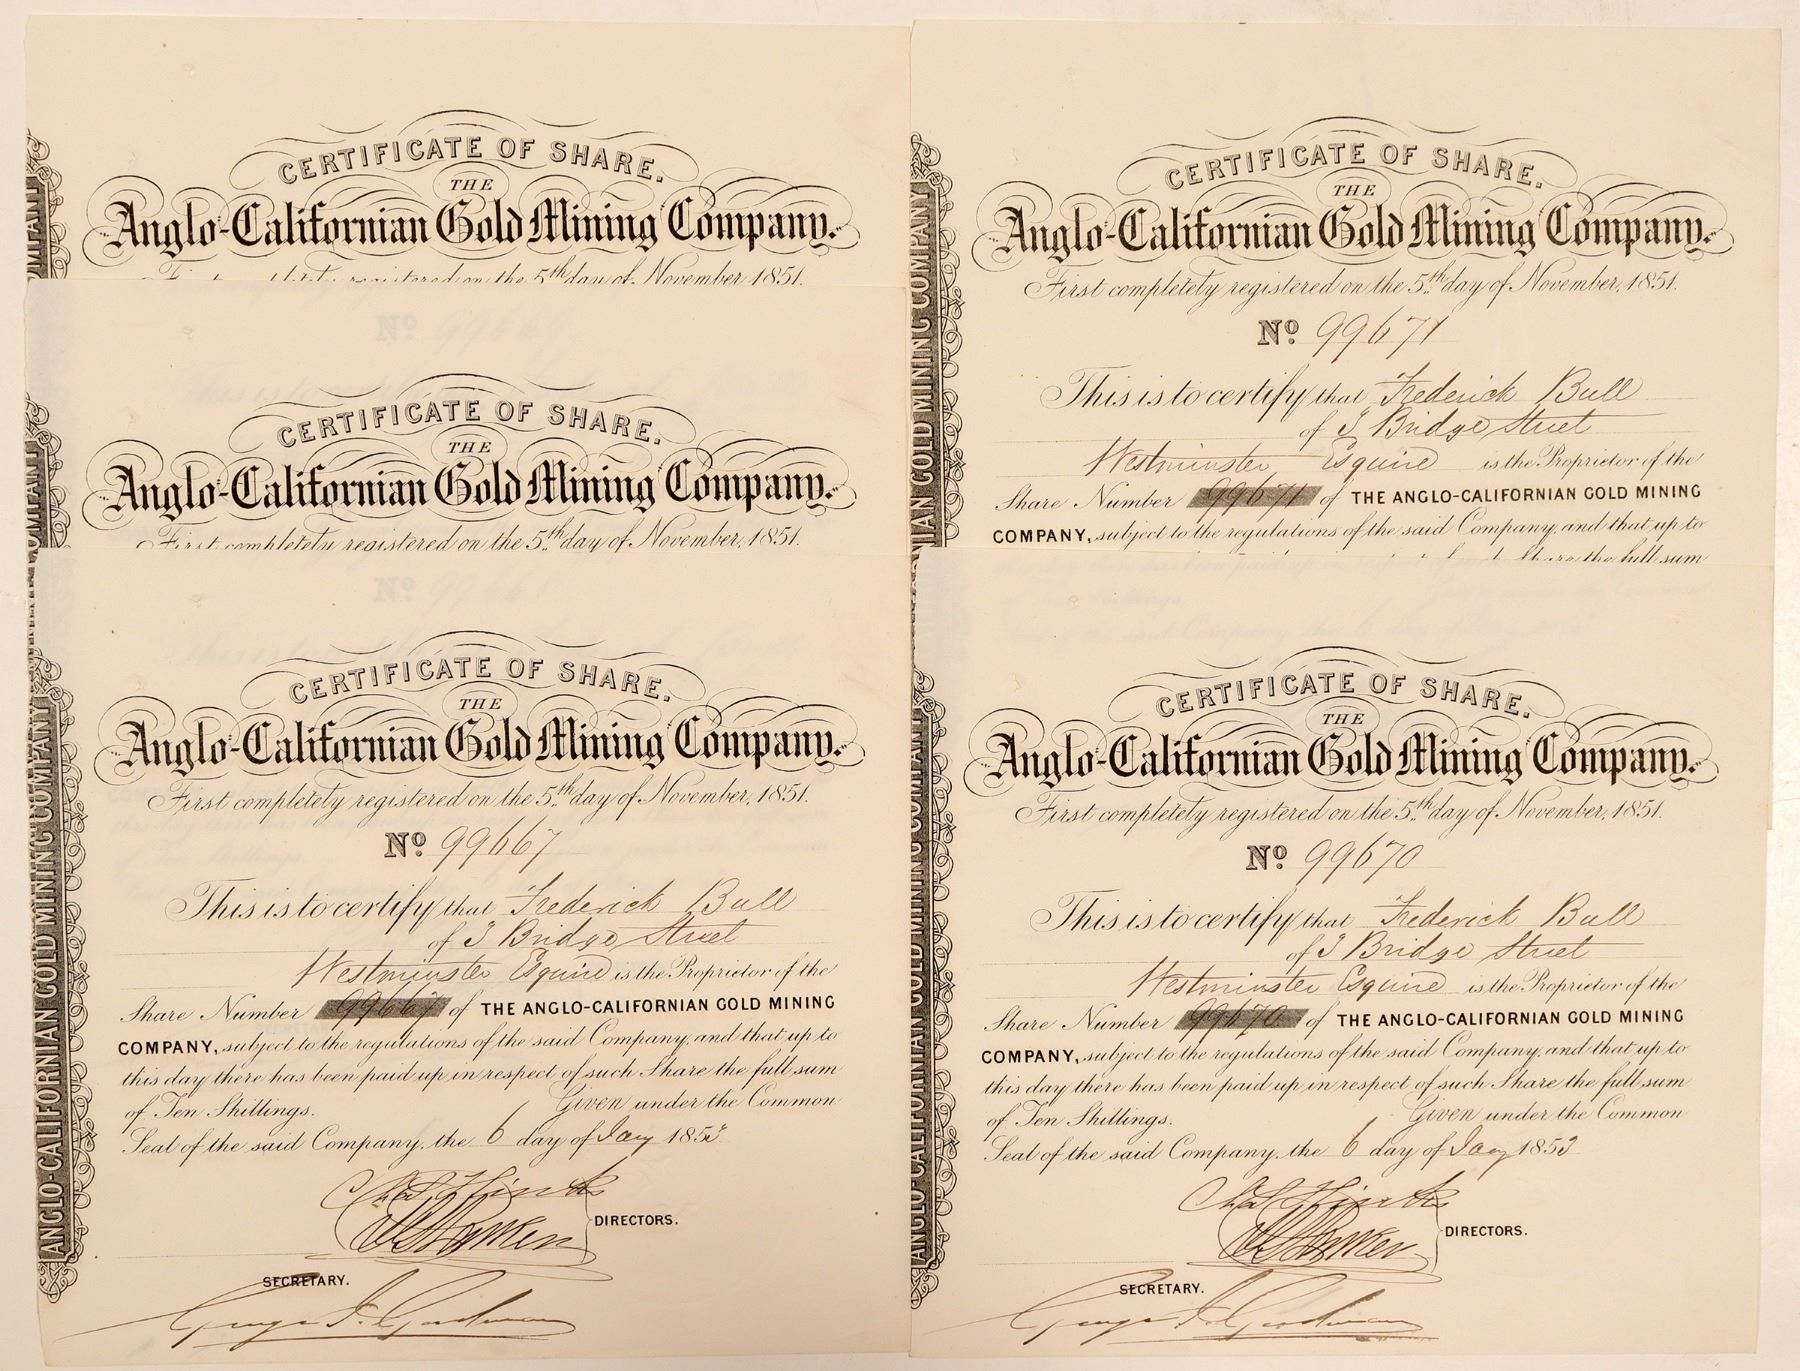 CERTIFICATE OF SHARE.
THE
Anglo-Californian Gold Mining Company.
registered on the 5th day of November, 1851.
CERTIFICATE OF SHARE.
THE
Anglo-Californian Gold Mining Company.
First completely registered on the 5th day of November, 1851.
CERTIFICATE OF SHARE.
THE
Anglo-Californian Gold Mining Company.
First completely registered on the 5th day of November, 1851.
No 99667
This is to certify that Frederick Bull
of 3 Bridge Street
Westminster Esquire is the Proprietor of the
Share Number 99667 of THE ANGLO-CALIFORNIAN GOLD MINING
COMPANY, subject to the regulations of the said Company, and that up to
this day there has been paid up in respect of such Share the full sum
of Ten Shillings. Given under the Common
Seal of the said Company, the 6 day of Jany 1853
DIRECTORS.
SECRETARY.
ANGLO-CALIFORNIAN GOLD MINING COMPANY
CERTIFICATE OF SHARE.
THE
Anglo-Californian Gold Mining Company.
First completely registered on the 5th day of November, 1851.
No 99671
This is to certify that Frederick Bull
of 3 Bridge Street
Westminster, Esquire is the Proprietor of the
Share Number 99671 of THE ANGLO-CALIFORNIAN GOLD MINING
COMPANY, subject to the regulations of the said Company, and that up to
Share the full sum
CERTIFICATE OF SHARE.
THE
Anglo-Californian Gold Mining Company.
First completely registered on the 5th day of November, 1851.
No 99670
This is to certify that Frederick Bull
of 3 Bridge Street
Westminster Esquire is the Proprietor of the
Share Number 99670 of THE ANGLO-CALIFORNIAN GOLD MINING
COMPANY, subject to the regulations of the said Company, and that up to
this day there has been paid up in respect of such Share the full sum
of Ten Shillings. Given under the Common
Seal of the said Company, the 6 day of Jany 1853
DIRECTORS.
SECRETARY.
ANGLO-CALIFORNIAN GOLD MINING COMPANY